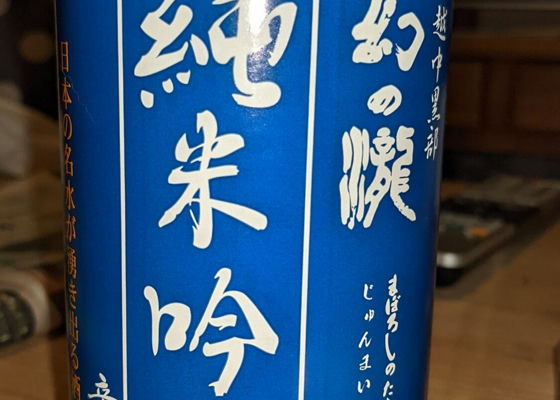 越中黒部
幻の瀧
まぼろしのた
じゅんまい
純米吟
日本の名水が湧き出る酒
辛